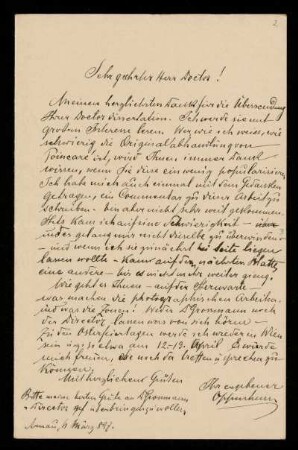 Sehr geehrter Herr Doctor!
Meinen herzlichsten Dank für die Übersendung
Ihrer Doctordissertation. Ich werde sie mit
großem Interesse lesen. Wer, wie ich weiss, wie
schwierig die Originalabhandlung von
Poincaré ist, wird Ihnen immer Dank
wissen, wenn Sie diese ein wenig popularisieren.
Ich habe mich auch einmal mit dem Gedanken
getragen, ein Commentar zu dieser Arbeit zu
schreiben, bin aber nicht sehr weit gekommen.
Stets kam ich auf eine Schwierigkeit
oder gelang mir nicht dieselbe zu überwinden
– und wenn ich sie zunächst bei Seite liegen
lassen wollte – kam auf der nächsten Blatte
eine andere – bis es nicht mehr weiter ging.
Wie geht es Ihnen – auf der Sternwarte?
was machen die photographischen Arbeiten
und was die Zonen? Weder Dr Grossmann noch
der Director lassen was von sich hören –
Zu den Osterfeiertagen werde ich wieder in Wien
sein u zwar etwa am 12–19. April. Es würde
mich freuen, Sie auch da treffen u sprechen zu
können.
Mit herzlichen Grüßen
Ihr ergebener
Oppenheim
Bitte meine besten Grüße an Dr Grossmann
u Director gef. überbringen zu wollen.
4 März 197.